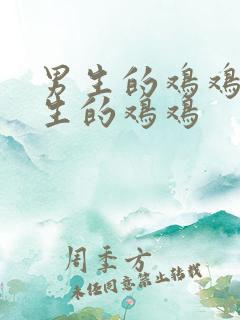 男生的鸡鸡
生的鸡鸡
周季方
未经同意禁止转载